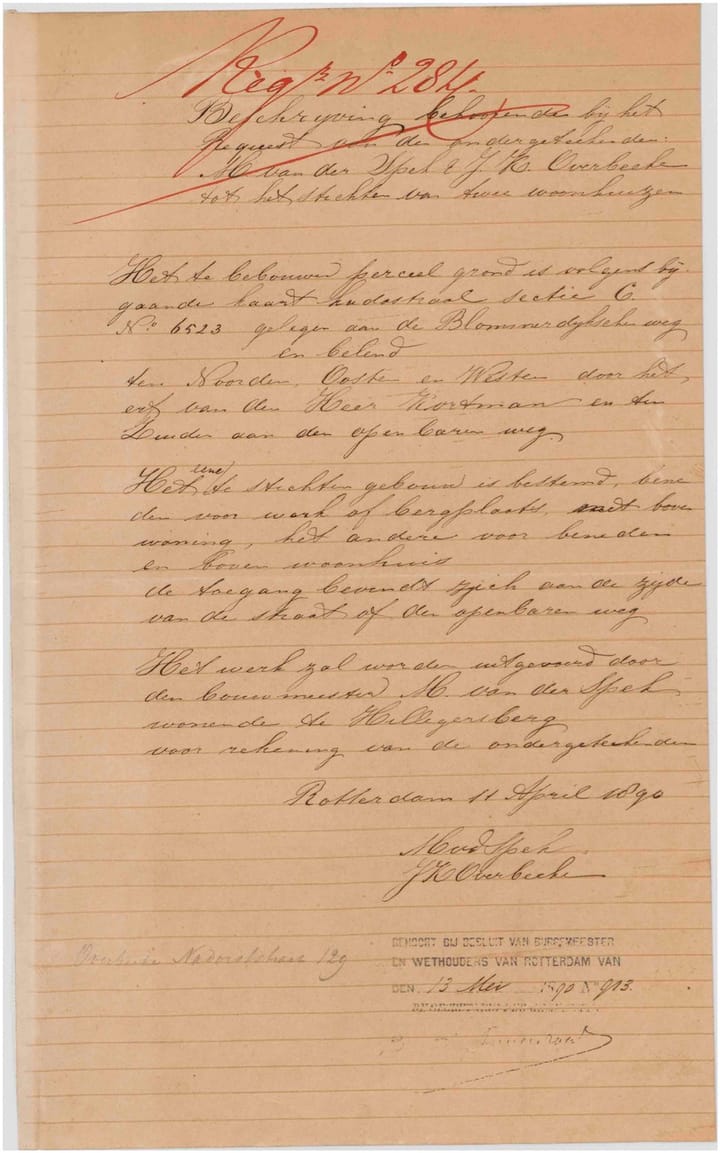 Regr. No 284.
Beschryving behoorende bij het
Request van den ondergeteekenden:
M. van der Spek & J. K. Overbeeke
tot het stichten van twee woonhuizen
Het te bebouwen perceel grond is volgens bij-
gaande kaart kadastraal sectie C.
No. 6523 gelegen aan de Blommerdykschen weg
en belend
ten Noorden, Oosten en Westen door het
erf van den Heer Kortman en ten
Zuiden aan den openbaren weg.
Het eene te stichten gebouw is bestemd, bene
den voor werk of bergplaats, met boven
woning, het andere voor beneden
en boven woonhuis
de toegang bevendt zich aan de zijde
van de straat of den openbaren weg
Het werk zal worden uitgevoerd door
den bouwmeester M. van der Spek
wonende te Hillegersberg
voor rekening van de ondergeteekenden
Rotterdam 11 April 1890
M vd Spek
J K Overbeeke
Overbeeke 129
BEHOORT BIJ BESLUIT VAN BURGEMEESTER
EN WETHOUDERS VAN ROTTERDAM VAN
DEN 13 Mei 1890 No 913.